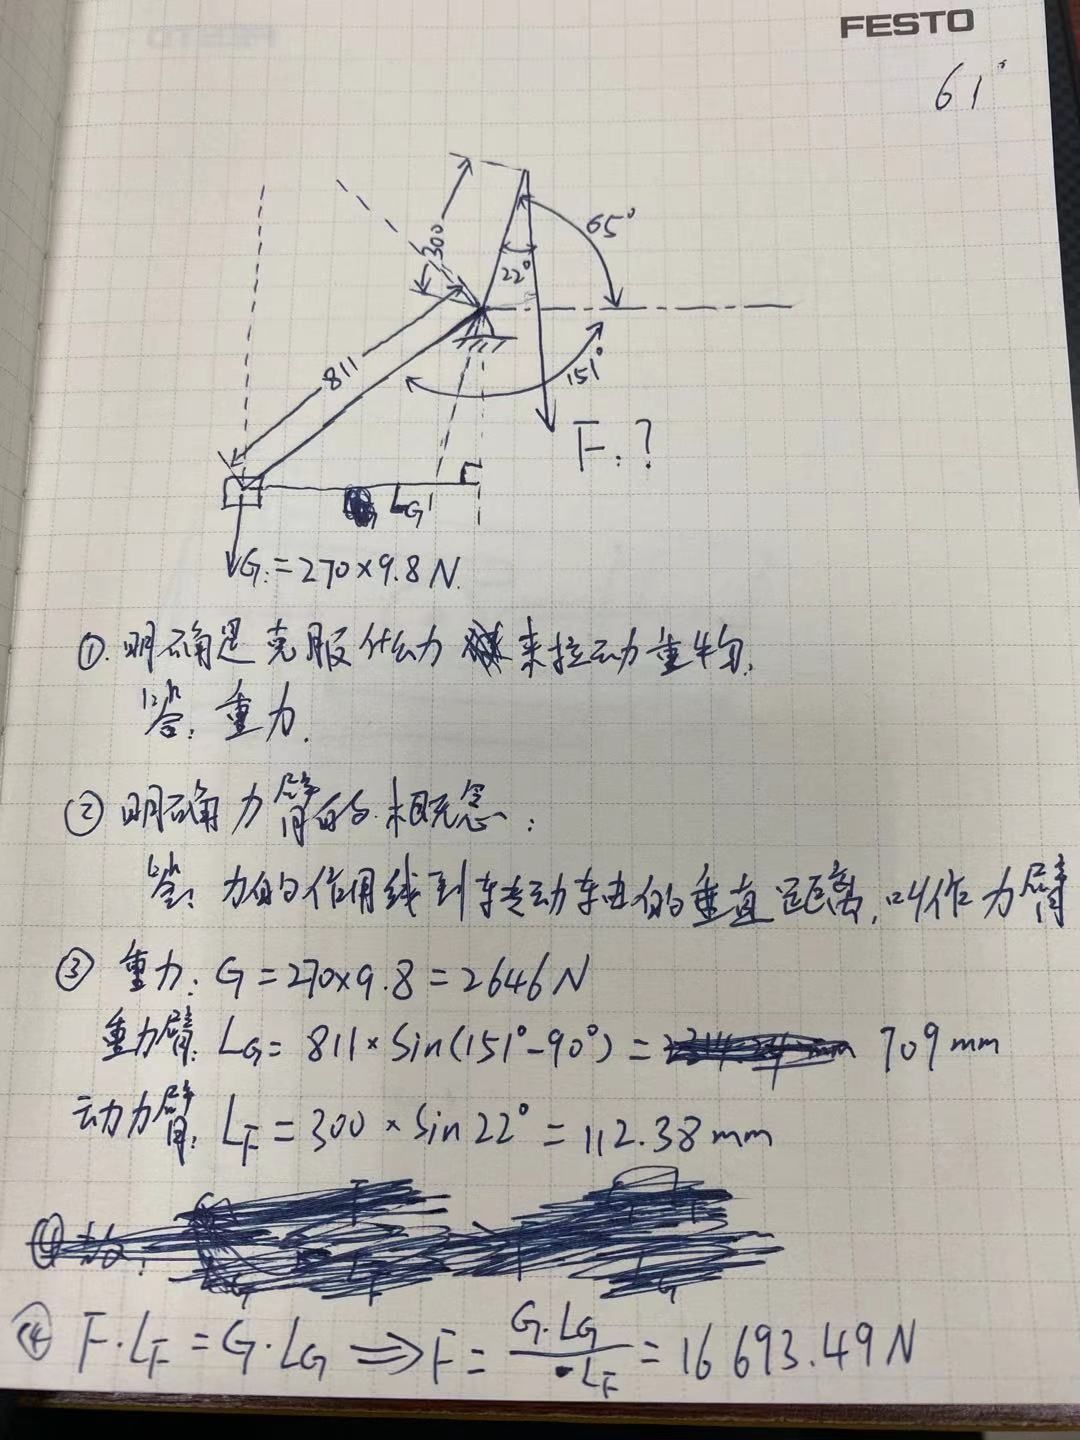 FESTO
61°
300
65°
22°
811
151°
F:?
LG
G:=270×9.8N.
①.明确是克服什么力来拉动重物.
答:重力.
②明确力臂的概念:
答:力的作用线到转动轴的垂直距离,叫作力臂
③重力:G=270×9.8=2646N
重力臂:LG=811×Sin(151°-90°)=709mm
动力臂:LF=300×Sin22°=112.38mm
④F·LF=G·LG⇒F=G·LG/LF=16693.49N